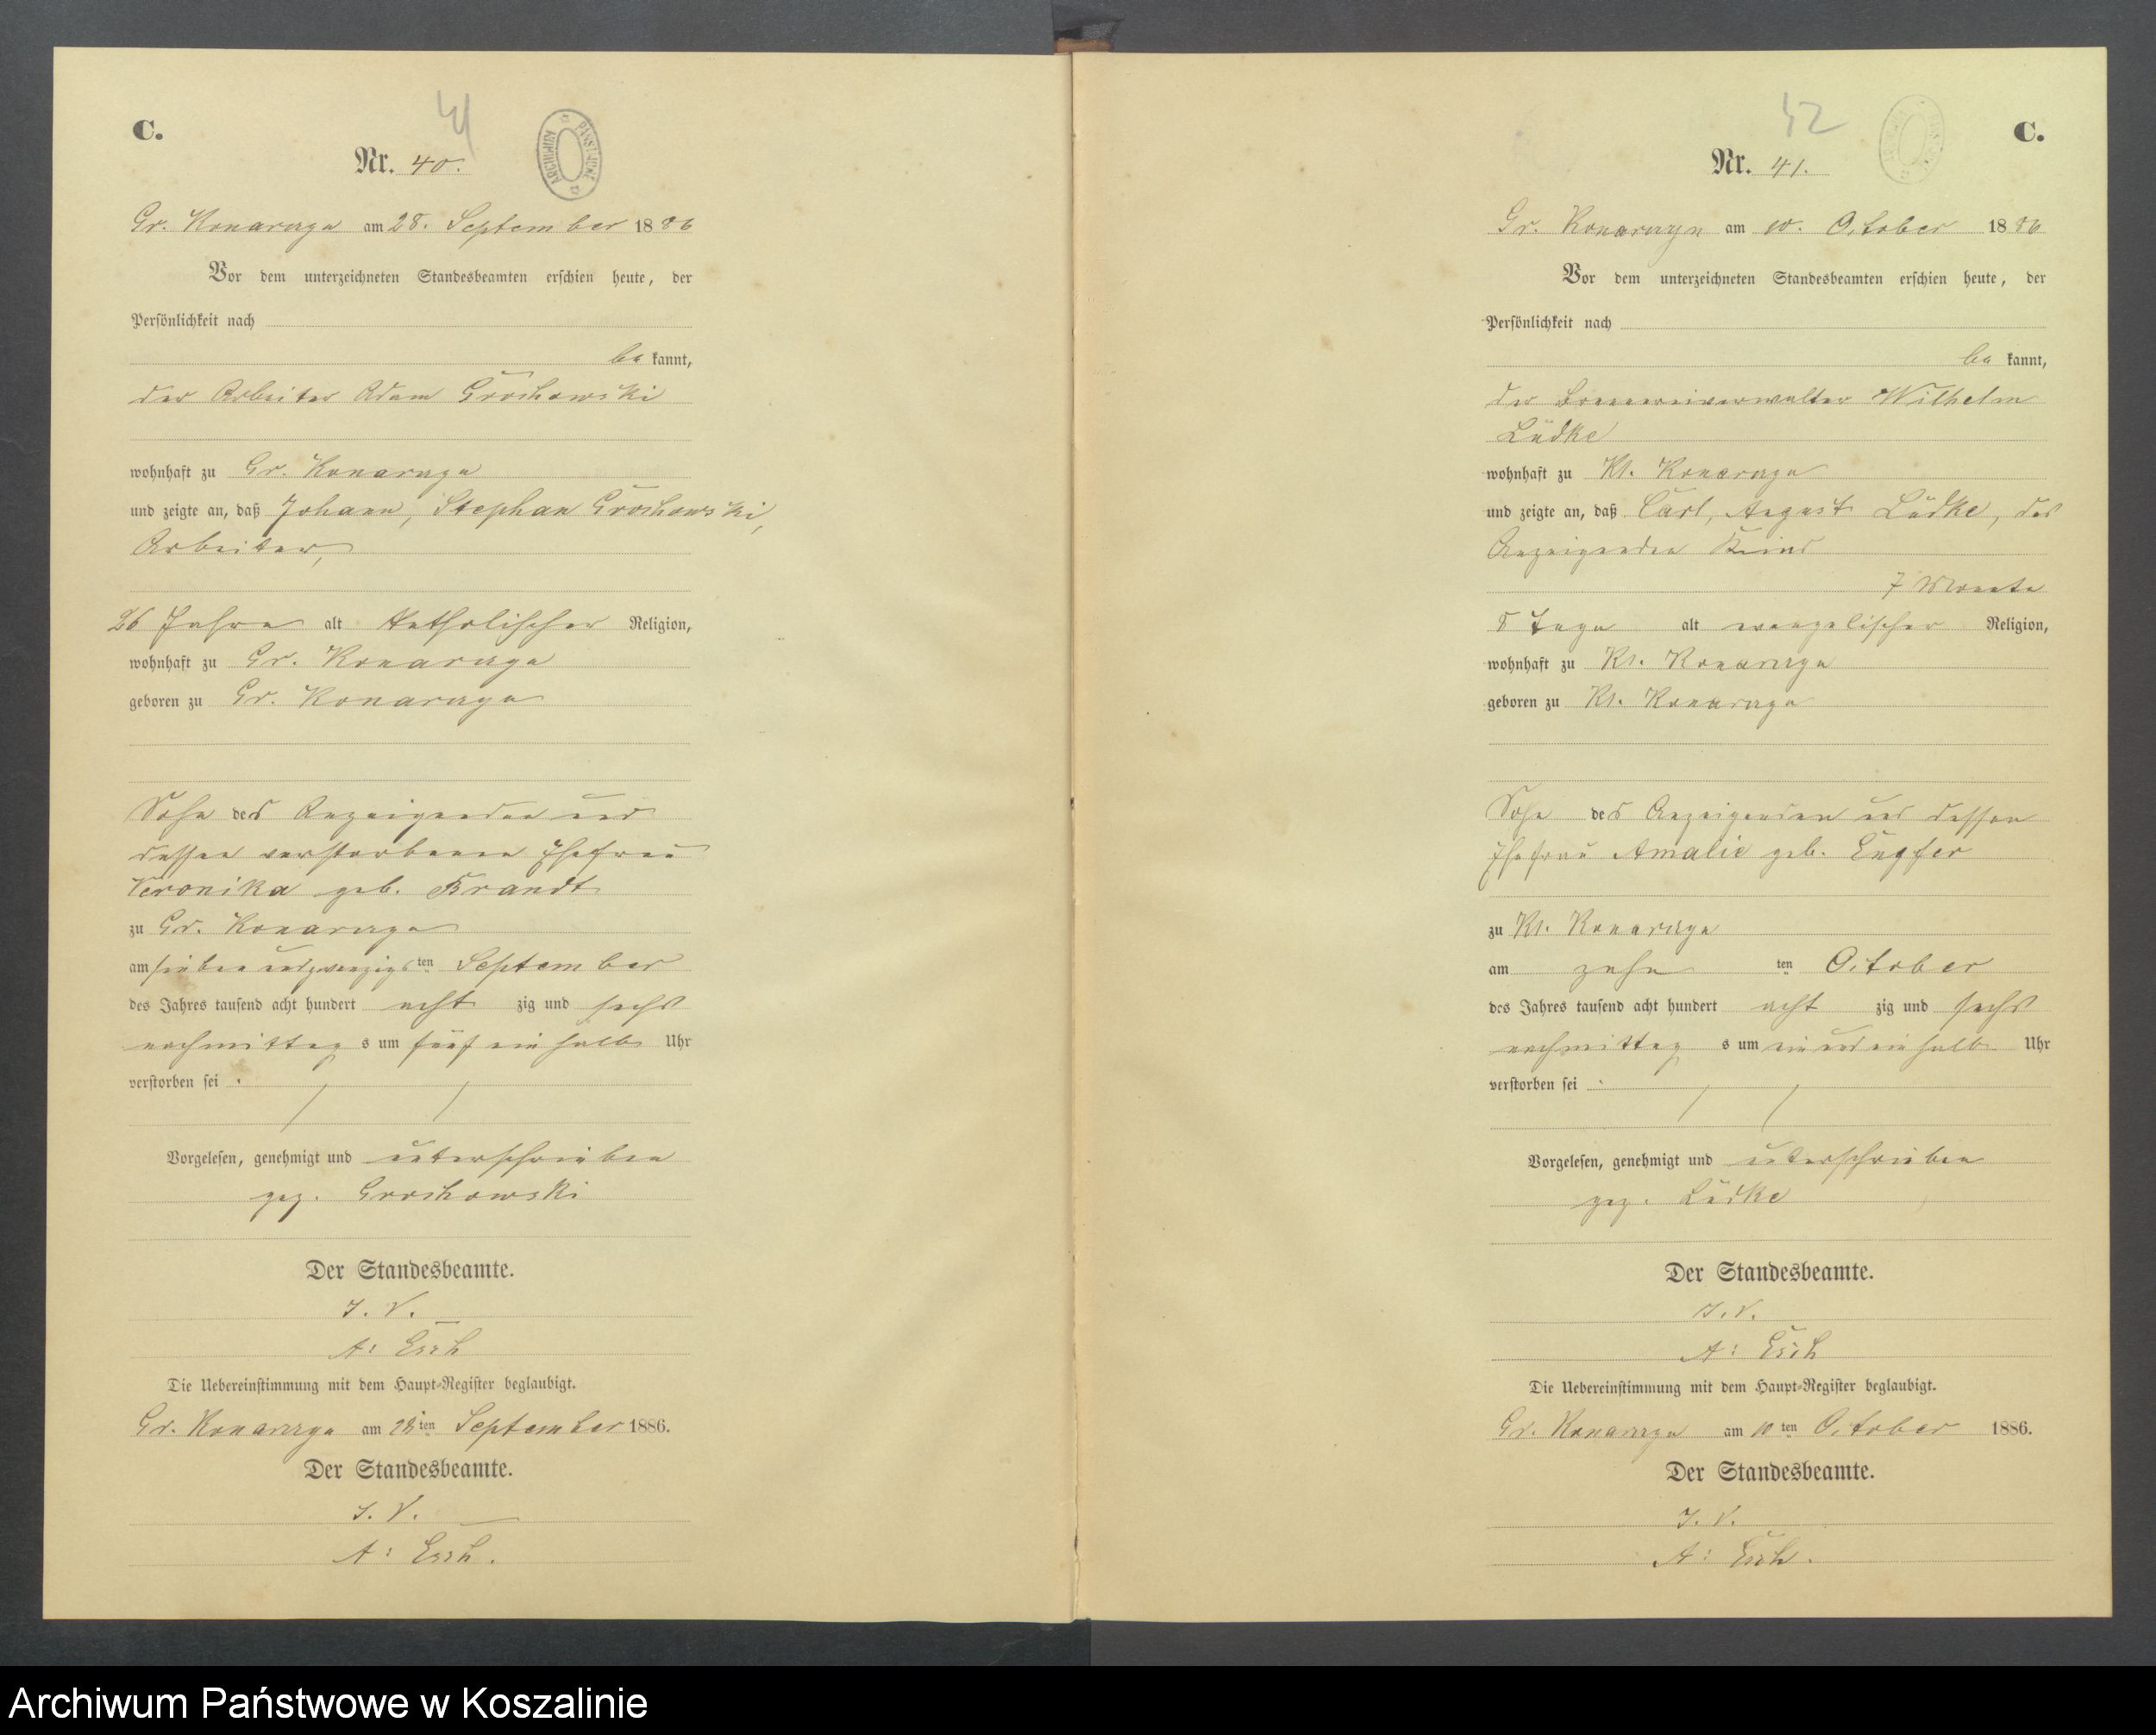 C.
41
Nr. 40.
ARCHIWUM PAŃSTWOWE
Gr. Konarczyn am 28. September 1886
Vor dem unterzeichneten Standesbeamten erschien heute, der
Persönlichkeit nach
be kannt,
der Arbeiter Adam Grochowski
wohnhaft zu Gr. Konarczyn
und zeigte an, daß Johann, Stephan Grochowski,
Arbeiter,
26 Jahre alt katholischer Religion,
wohnhaft zu Gr. Konarczyn
geboren zu Gr. Konarczyn
Sohn des Anzeigenden und
dessen verstorbenen Ehefrau
Veronika geb. Brandt
zu Gr. Konarczyn
am sieben undzwanzigsten September
des Jahres tausend acht hundert acht zig und sechs
nachmittag s um fünf ein halb Uhr
verstorben sei .
Vorgelesen, genehmigt und unterschrieben
gez. Grochowski
Der Standesbeamte.
I. V.
A:
Die Uebereinstimmung mit dem Haupt-Register beglaubigt.
Gr. Konarczyn am 28ten September 1886.
Der Standesbeamte.
I. V.
A:
C.
42
Nr. 41.
Gr. Konarczyn am 10. October 1886
Vor dem unterzeichneten Standesbeamten erschien heute, der
Persönlichkeit nach
be kannt,
der Brennereiverwalter Wilhelm
Lüdke
wohnhaft zu Kl. Konarczyn
und zeigte an, daß Carl, August Lüdke, des
Anzeigenden Kind
7 Monate
8 Tage alt evangelischer Religion,
wohnhaft zu Kl. Konarczyn
geboren zu Kl. Konarczyn
Sohn des Anzeigenden und dessen
Ehefrau Amalie geb. Engfer
zu Kl. Konarczyn
am zehn ten October
des Jahres tausend acht hundert acht zig und sechs
nachmittag s um ein und ein halb Uhr
verstorben sei .
Vorgelesen, genehmigt und unterschrieben
gez. Lüdke
Der Standesbeamte.
I. V.
A:
Die Uebereinstimmung mit dem Haupt-Register beglaubigt.
Gr. Konarczyn am 10 ten October 1886.
Der Standesbeamte.
I. V.
A:
Archiwum Państwowe w Koszalinie